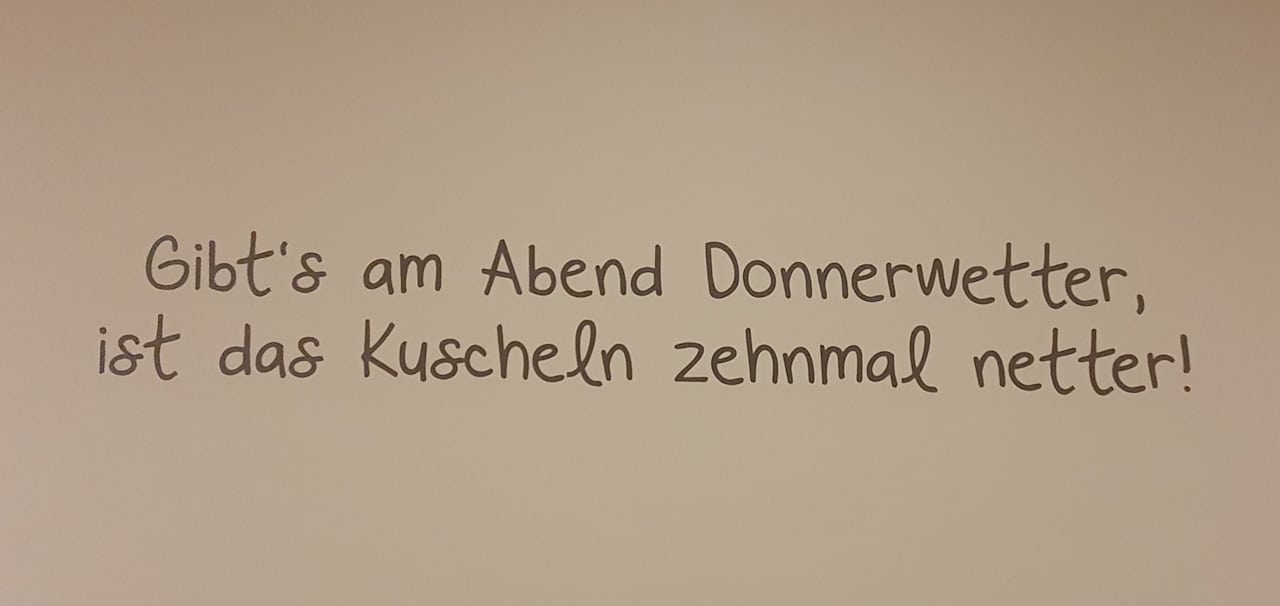 Gibt's am Abend Donnerwetter,
ist das Kuscheln zehnmal netter!